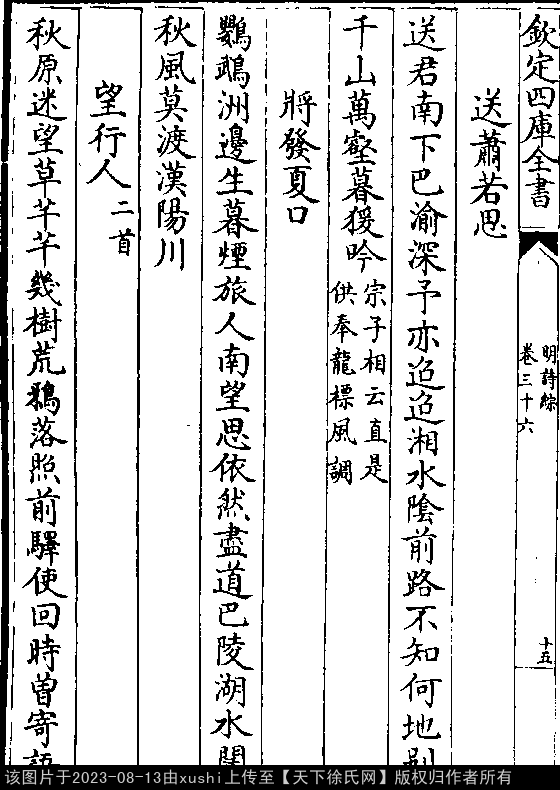 欽定四庫全書
明詩綜
卷三十六
十五
送蕭若思
送君南下巴渝深予亦迢迢湘水隂前路不知何地别
千山萬壑暮猨吟宗子相云直是
供奉龍標風調
將發夏口
鸚鵡洲邊生暮煙旅人南望思依然盡道巴陵湖水闊
秋風莫渡漢陽川
望行人二首
秋原迷望草芊芊幾樹荒鵶落照前驛使回時曽寄語
该图片于2023-08-13由xushi上传至【天下徐氏网】版权归作者所有